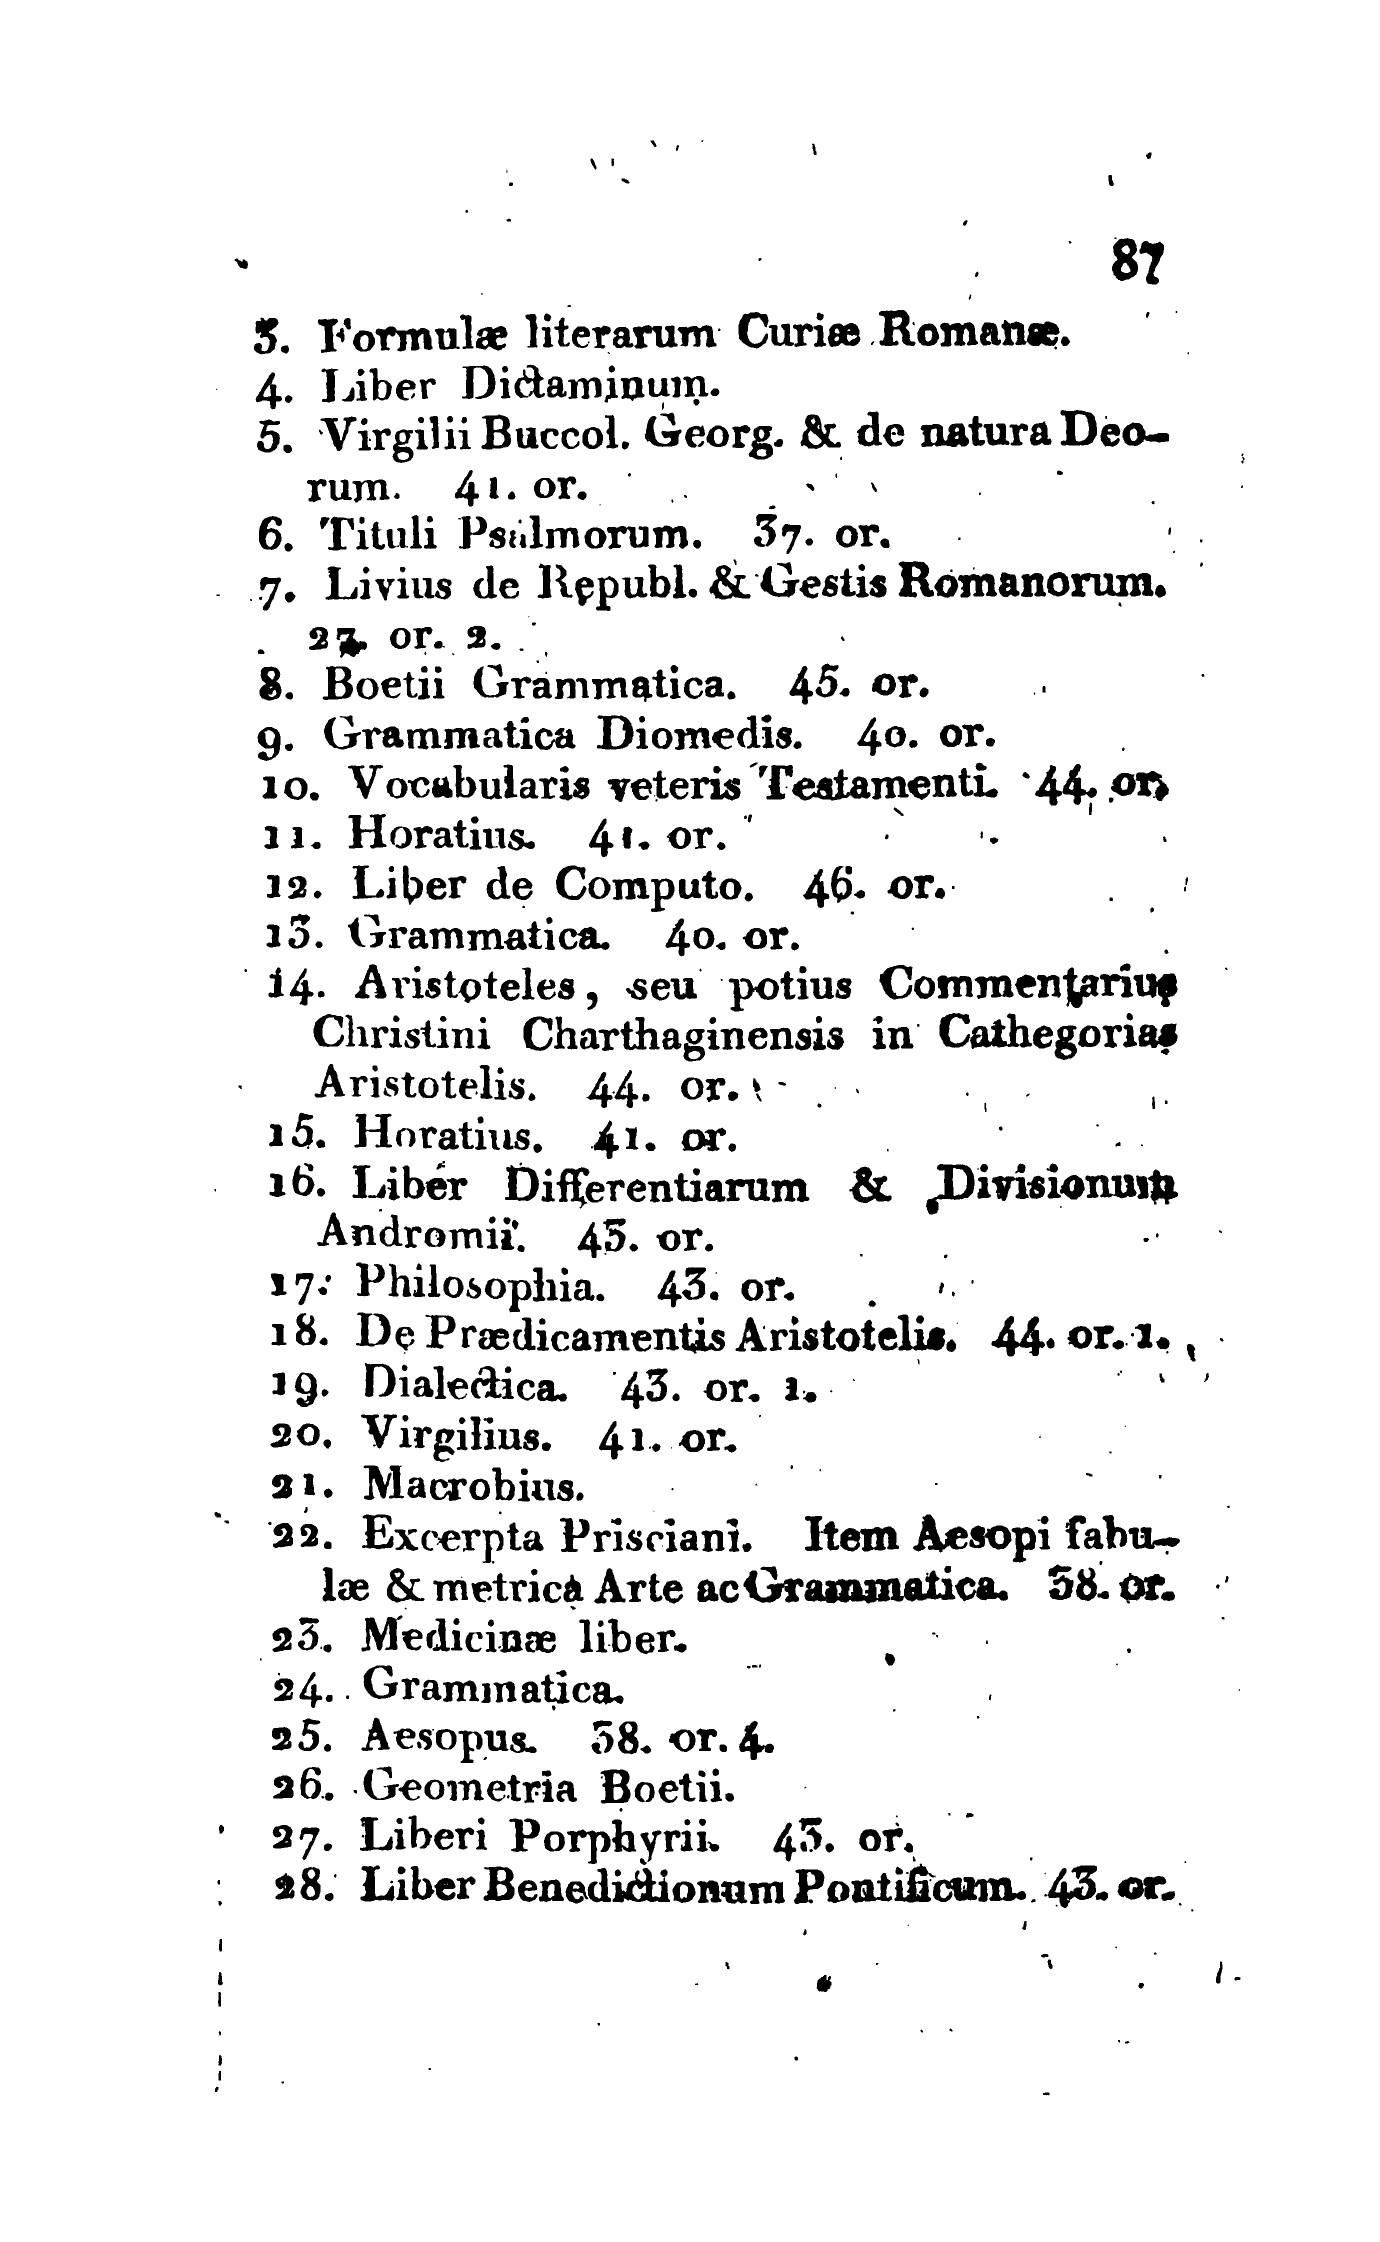 87
3. Formulæ literarum Curiæ Romanæ.
4. Liber Dictaminum.
5. Virgilii Buccol. Georg. & de natura Deo-
rum. 41. or.
6. Tituli Psalmorum. 37. or.
7. Livius de Republ. & Gestis Romanorum.
27. or. 2.
8. Boetii Grammatica. 45. or.
9. Grammatica Diomedis. 40. or.
10. Vocabularis veteris Testamenti. 44. or.
11. Horatius. 41. or.
12. Liber de Computo. 46. or.
13. Grammatica. 40. or.
14. Aristoteles, seu potius Commentarius
Christini Charthaginensis in Cathegorias
Aristotelis. 44. or.
15. Horatius. 41. or.
16. Liber Differentiarum & Divisionum
Andromii. 43. or.
17. Philosophia. 43. or.
18. De Prædicamentis Aristotelis. 44. or. 1.
19. Dialectica. 43. or. 1.
20. Virgilius. 41. or.
21. Macrobius.
22. Excerpta Prisciani. Item Aesopi fabu-
læ & metrica Arte ac Grammatica. 38. or.
23. Medicinæ liber.
24. Grammatica.
25. Aesopus. 38. or. 4.
26. Geometria Boetii.
27. Liberi Porphyrii. 43. or.
28. Liber Benedictionum Pontificum. 43. or.